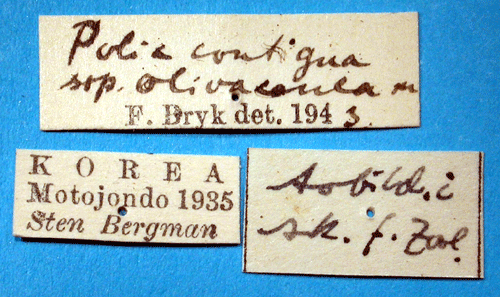 Polia contigua
ssp. olivacea m
F. Bryk det. 1943.
KOREA
Motojondo 1935
Sten Bergman
Avbild. i
sk. f. Zool.